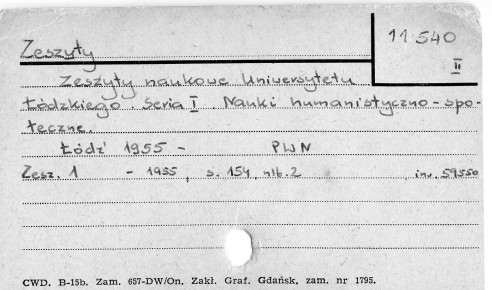 Zeszyty
11540
II
Zeszyty naukowe Uniwersytetu
Łódzkiego. Seria I Nauki humanistyczno-spo-
łeczne.
Łódź 1955 - PWN
Zesz. 1 - 1955, s. 154, nlb. 2 , inw. 59550
CWD. B-15b. Zam. 657-DW/On. Zakł. Graf. Gdańsk, zam. nr 1795.